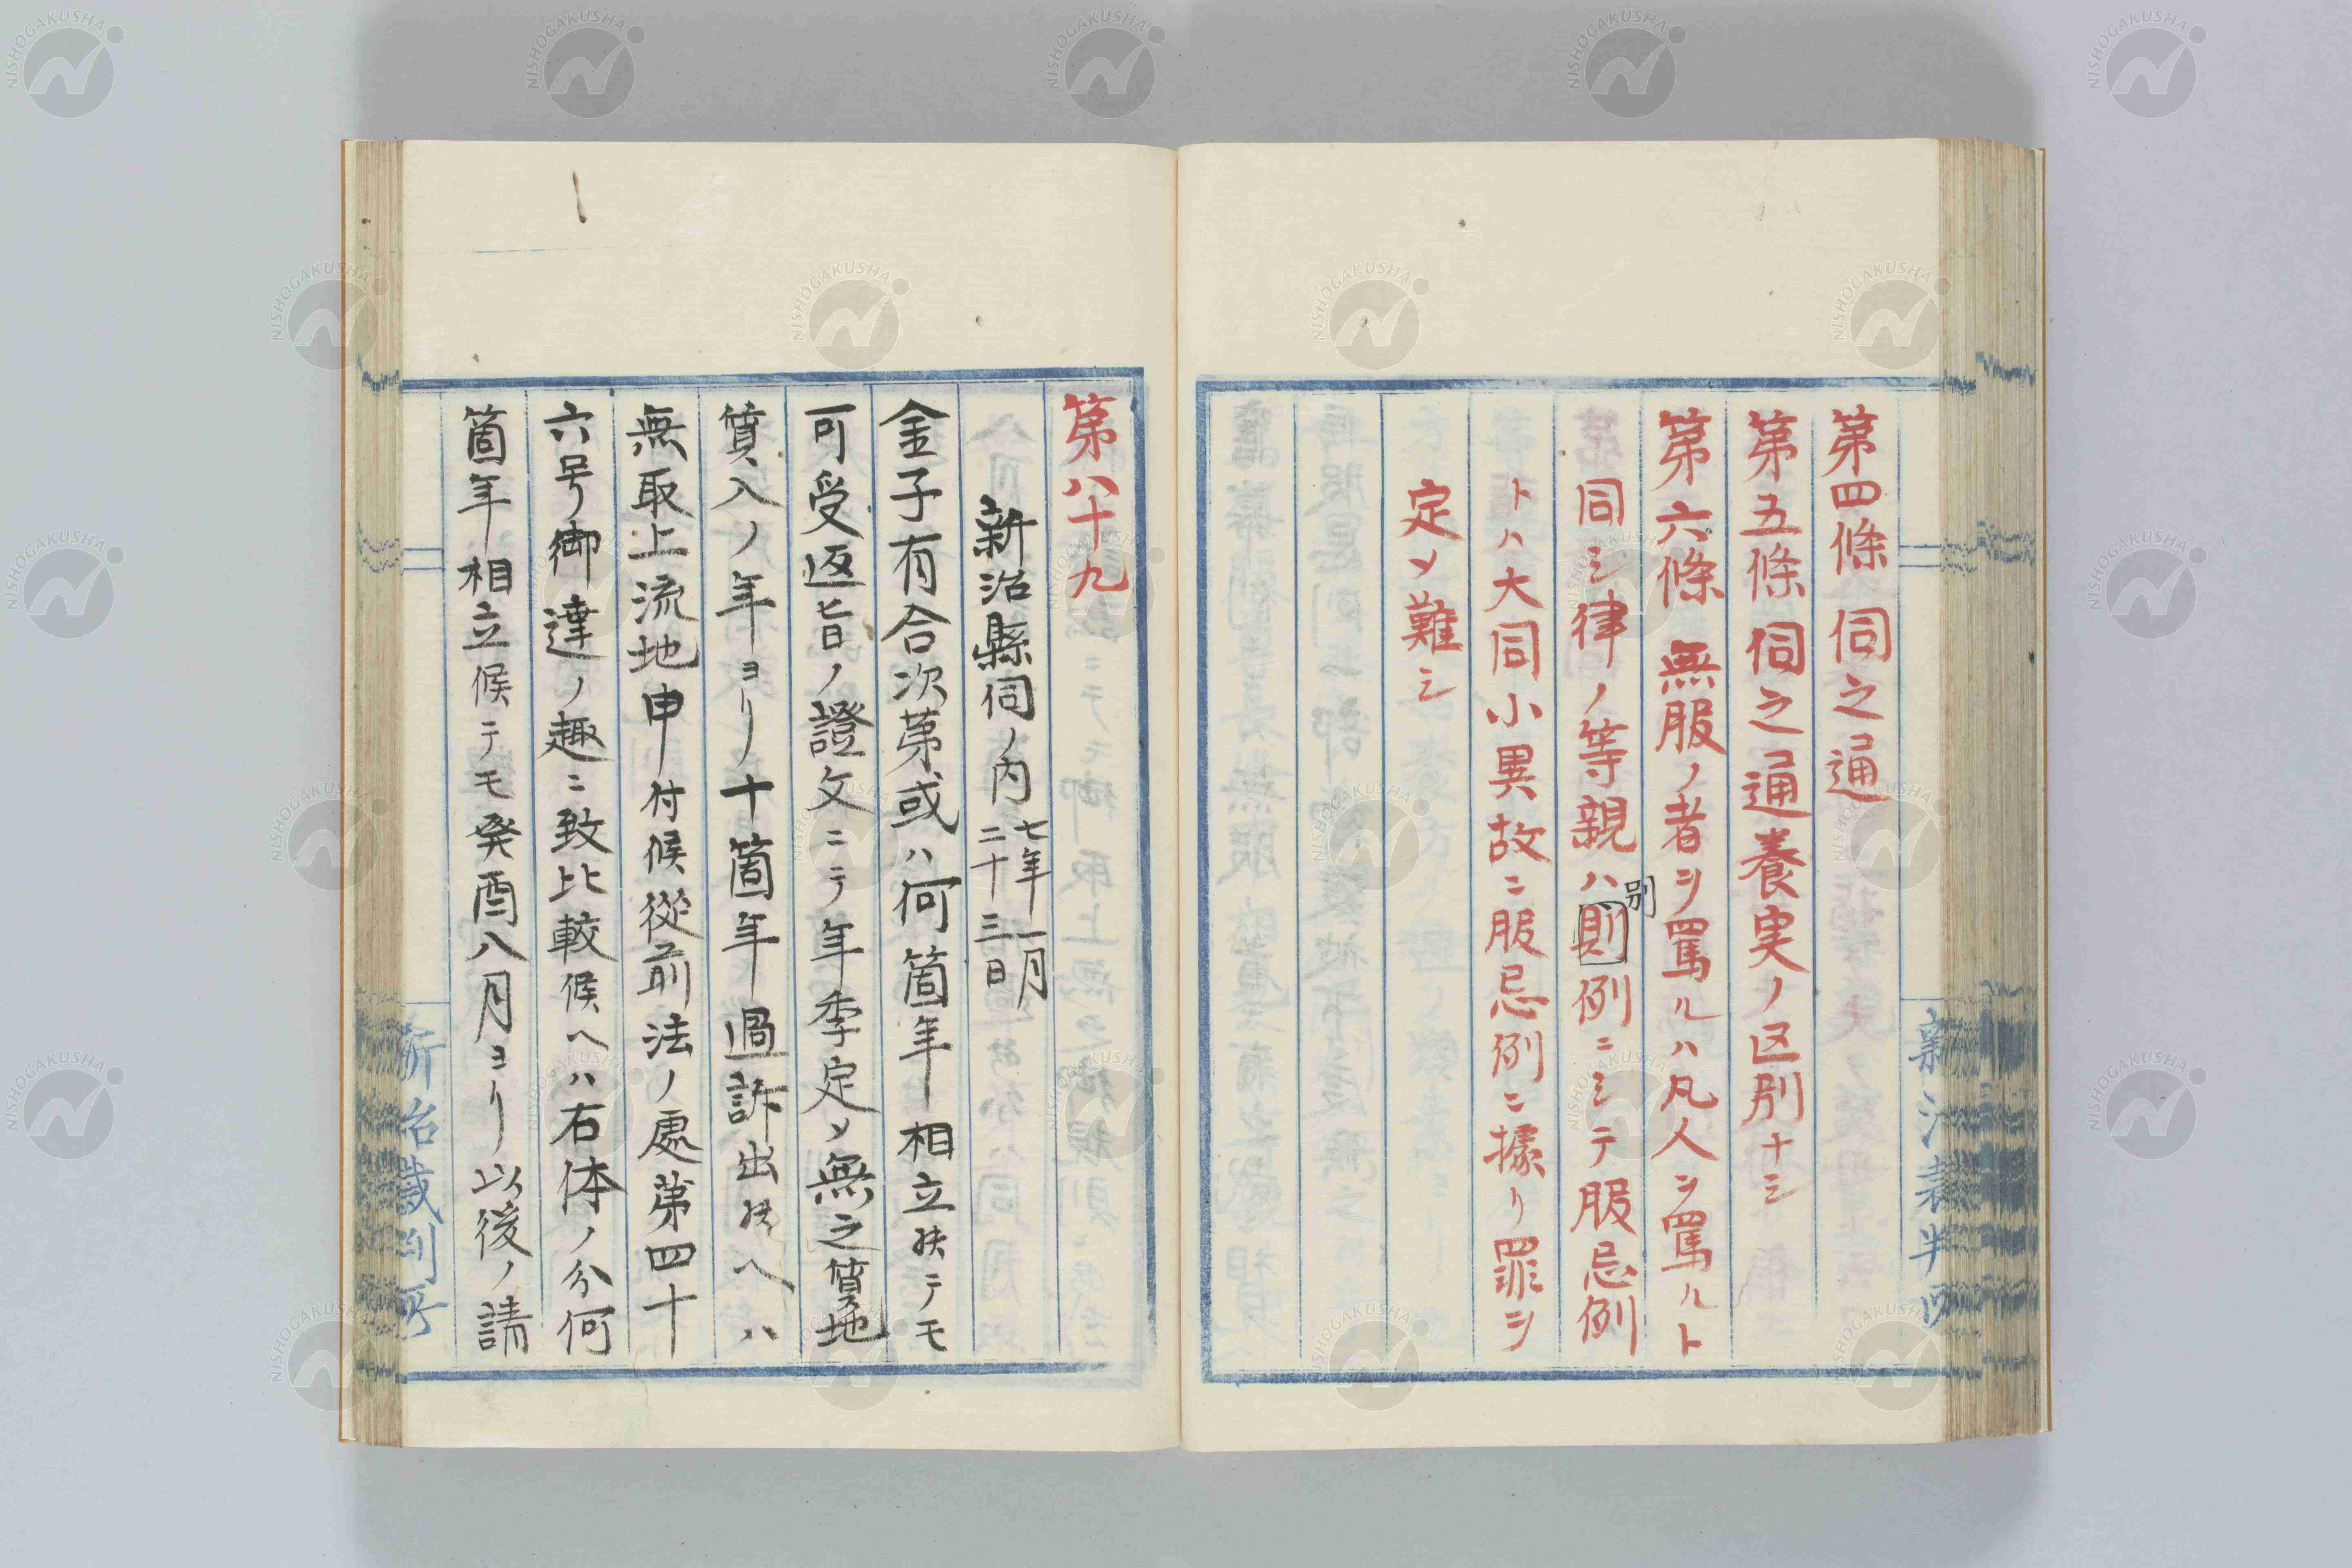 第四條 伺之通
第五條 伺之通養実ノ区別ナシ
第六條 無服ノ者ヲ罵ルハ凡人ヲ罵ルト
同シ律ノ等親ハ則例ニシテ服忌例
別
トハ大同小異故ニ服忌例ニ據リ罪ヲ
定メ難シ
新治裁判所
第八十九
新治縣伺ノ内 七年一月
二十三日
金子有合次第或ハ何箇年相立候テモ
可受返旨ノ證文ニテ年季定メ無之質地
質入ノ年ヨリ十箇年過訴出候ヘハ
無取上流地申付候從前法ノ處第四十
六号御達ノ趣ニ致比較候ヘハ右体ノ分何
箇年相立候テモ癸酉八月ヨリ以後ノ請
新治裁判所
NISHOGAKUSHA